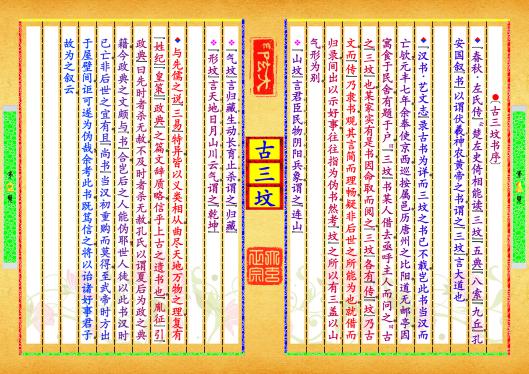 ●【古三坟书序】
◆《春秋·左氏传》云楚左史倚相能读《三坟》《五典》《八索》《九丘》孔
安国叙书以谓伏羲神农黄帝之书谓之《三坟》言大道也
◆《汉书·艺文志》录古书为详而三坟之书已不载岂此书当汉而
亡欤元丰七年余奉使京西巡按属邑历唐州之比阳道无邮亭因
寓食于民舍有题于户《三坟》书某人借去亟呼主人而问之古
之《三坟》也某家实有是书因命取而阅之《三坟》各有《传》坟乃古
文而《传》乃隶书观其言简而理畅疑非后世之所能为也就借而
归录间出以示好事往往指为伪书然考《坟》之所以有三盖以山
气形为别
◆《山坟》言君臣民物阴阳兵象谓之《连山》
古三坟
◆《气坟》言归藏生动长育止杀谓之《归藏》
◆《形坟》言天地日月山川云气谓之《乾坤》
◆与先儒之说三易特异皆以义类相从曲尽天地万物之理复有
《姓纪》《皇策》《政典》之篇文辞质略信乎上古之遗书也《胤征》引
政典曰先时者杀无赦不及时者杀无赦孔氏以谓夏后为政之典
籍今政典之文颇与《书》合岂后之人能伪耶世人徒以此书汉时
已亡非后世之宜有且《尚书》当汉初重购而莫得至武帝时方出
于屋壁间讵可遂为伪哉余考此书既笃信之将以诒诸好事君子
故为之叙云